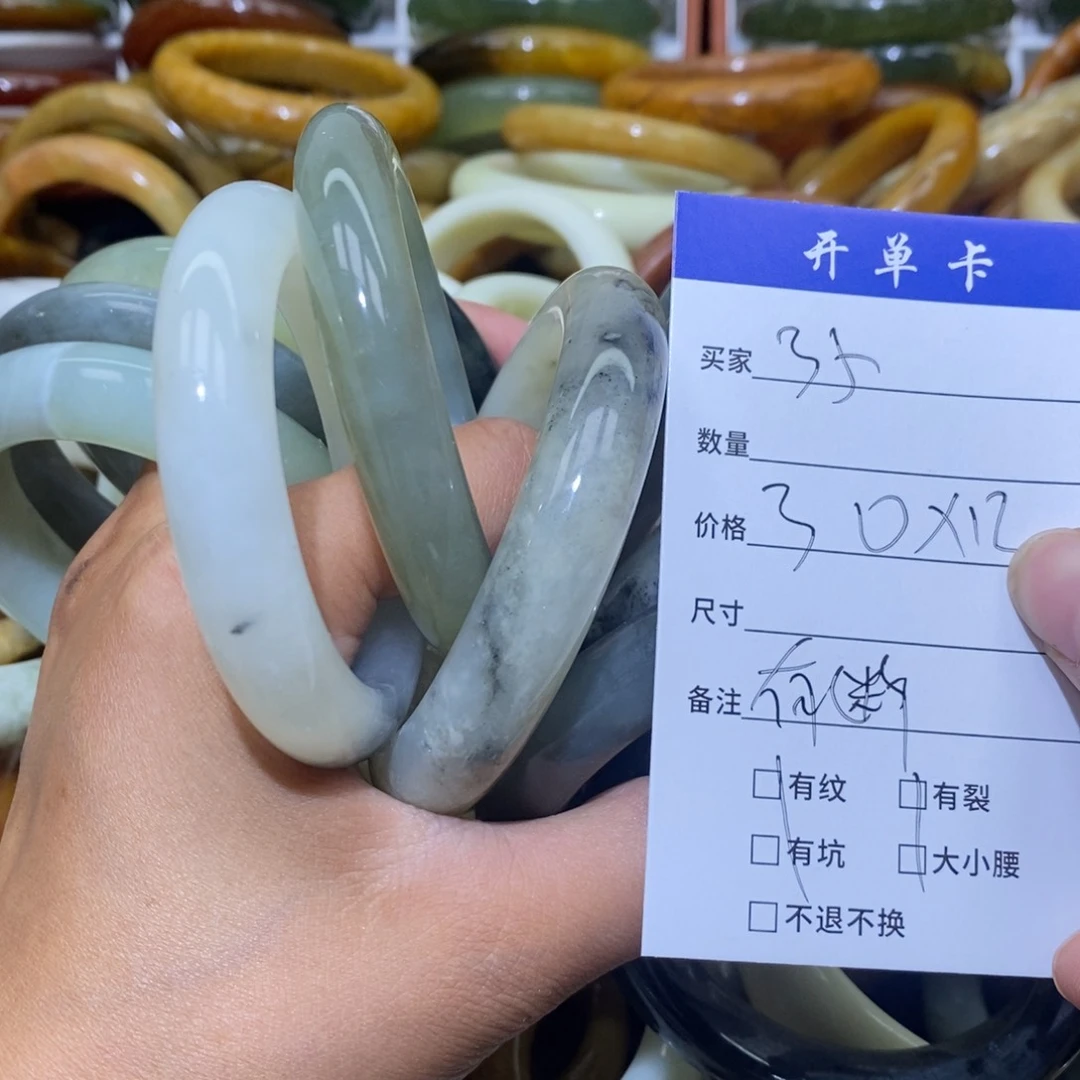 开单卡
买家
数量
价格 30X12
尺寸
备注 有断
□有纹 □有裂
□有坑 □大小腰
□不退不换